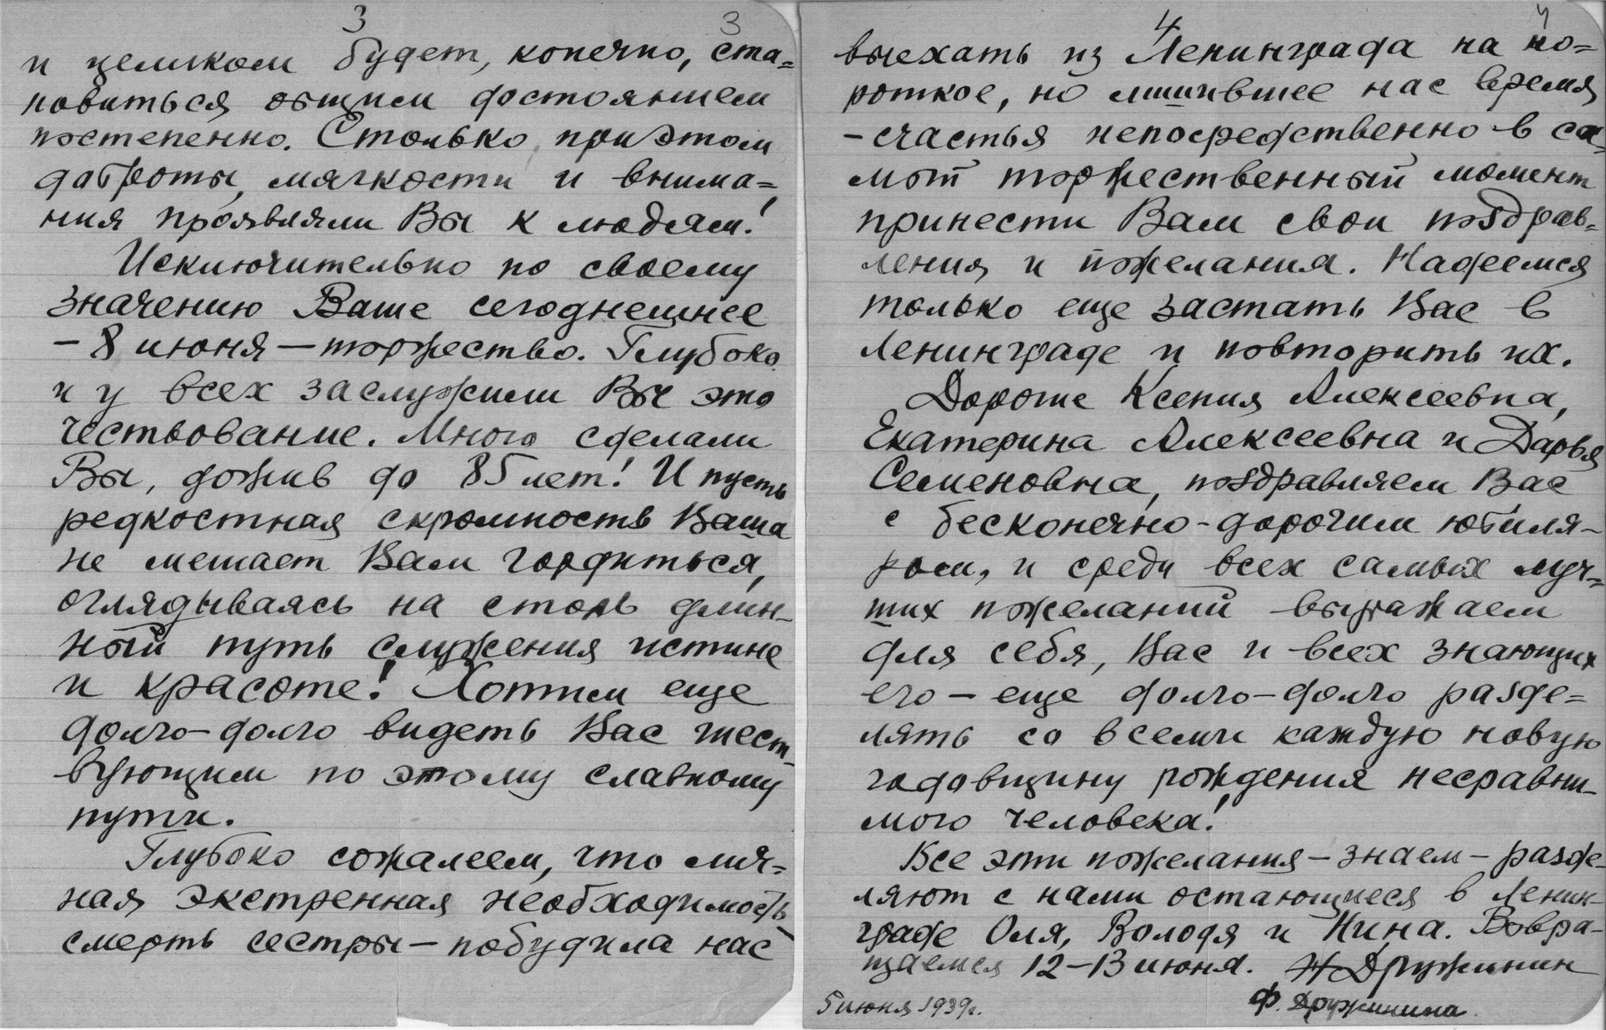 3 3
и целиком будет, конечно, ста=
новиться общим достоянием
постепенно. Столько при этом
доброты, мягкости и внима=
ния проявляли Вы к людям!
Исключительно по своему
значению Ваше сегоднешнее
– 8 июня – торжество. Глубоко
и у всех заслужили Вы это
чествование. Много сделали
Вы, дожив до 85 лет! И пусть
редкостная скромность Ваша
не мешает Вам гордиться,
оглядываясь на столь длин-
ный путь служения истине
и красоте! Хотим еще
долго-долго видеть Вас шест-
вующим по этому славному
пути.
Глубоко сожалеем, что лич=
ная экстренная необходимость –
смерть сестры – побудила нас
4 4
выехать из Ленинграда на ко=
роткое, но лишившее нас время
– счастья непосредственно в са=
мый торжественный момент
принести Вам свои поздрав=
ления и пожелания. Надеемся
только еще застать Вас в
Ленинграде и повторить их.
Дорогие Ксения Алексеевна,
Екатерина Алексеевна и Дарья
Семеновна, поздравляем Вас
с бесконечно-дорогим юбиля-
ром, и среди всех самых луч=
ших пожеланий выражаем
для себя, Вас и всех знающих
его – еще долго-долго разде=
лять со всеми каждую новую
годовщину рождения несравни-
мого человека!
Все эти пожелания – знаем – разде-
ляют с нами остающиеся в Ленин-
граде Оля, Володя и Нина. Возвра-
щаемся 12–13 июня. Н Дружинин
5 июня 1939г. Ф. Дружинина